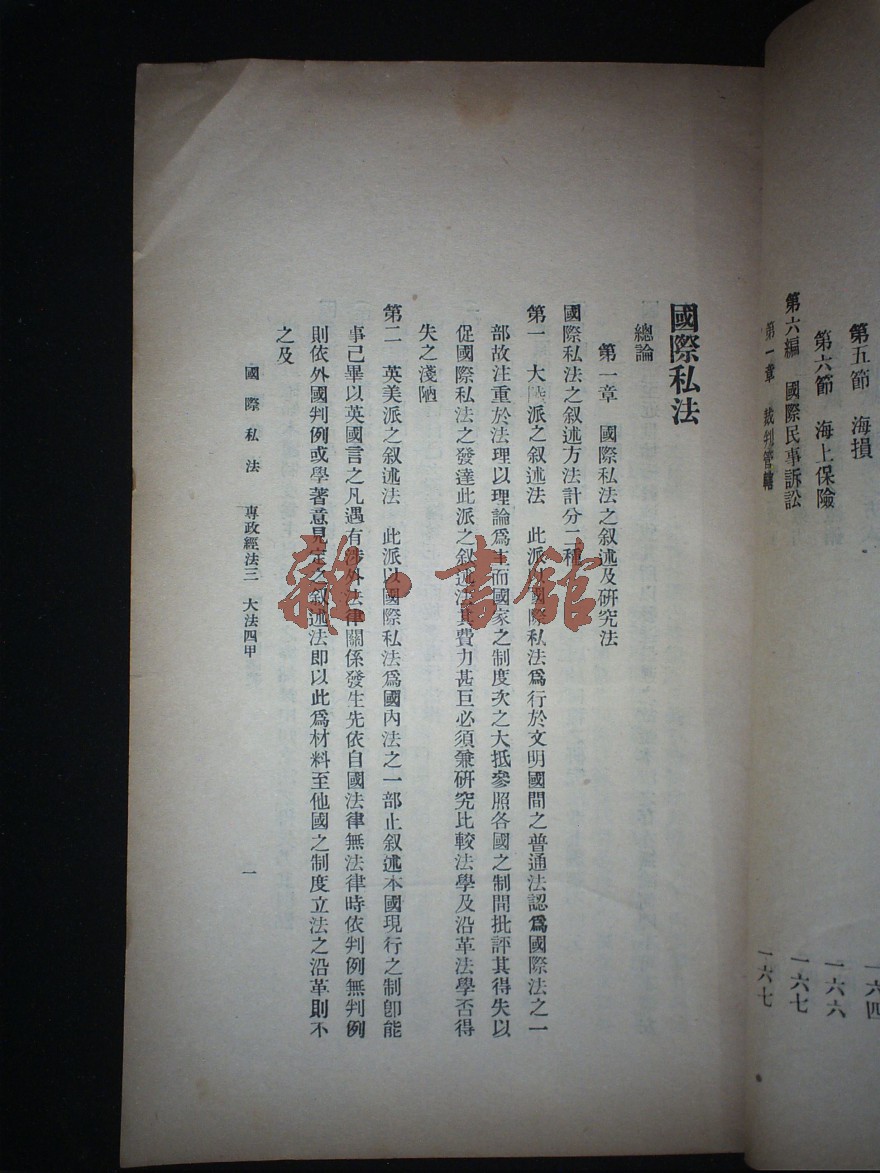 第五節 海損 一六四
第六節 海上保險 一六六
第六編 國際民事訴訟 一六七
第一章 裁判管轄 一六七
國際私法
總論
第一章 國際私法之叙述及研究法
國際私法之叙述方法計分二種
第一 大陸派之叙述法 此派以國際私法爲行於文明國間之普通法認爲國際法之一
部故注重於法理以理論爲主而國家之制度次之大抵參照各國之制間批評其得失以
促國際私法之發達此派之叙述法其費力甚巨必須兼研究比較法學及沿革法學否得
失之淺陋
第二 英美派之叙述法 此派以國際私法爲國內法之一部止叙述本國現行之制卽能
事已畢以英國言之凡遇有涉外法律關係發生先依自國法律無法律時依判例無判例
則依外國判例或學著意見定之叙述法即以此爲材料至他國之制度立法之沿革則不
之及
國際私法 專政經法三 大法四甲 一
雜·書館